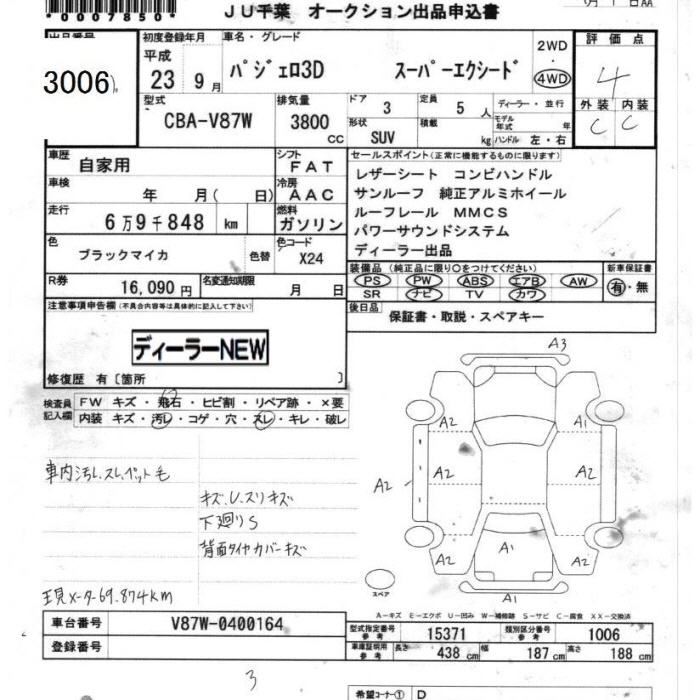 *0007850*
JU千葉 オークション出品申込書
初度登録年月 車名・グレード 2WD 評価点
3006 平成 23 9月 パジェロ3D スーパーエクシード ・ 4WD 4
型式 CBA-V87W 排気量 3800 CC ドア 3 定員 5 人 ディーラー・並行 外装 内装
形状 SUV 積載 kg モデル年式 年 ハンドル 左・右 C C
車歴 自家用 シフト FAT セールスポイント(正常に機能するものに限ります)
車検 年 月( 日) 冷房 AAC レザーシート コンビハンドル
サンルーフ 純正アルミホイール
走行 6万9千848 km 燃料 ガソリン ルーフレール MMCS
パワーサウンドシステム
色 ブラックマイカ 色替 色コード X24 ディーラー出品
装備品(純正品に限り○をつけてください) 新車保証書
R券 16,090円 名変通知期限 月 日 PS PW ABS エアB AW 有・無
SR ナビ TV カワ
注意事項申告欄(不具合内容等は具体的に記入して下さい) 後日品 保証書・取説・スペアキー
ディーラーNEW
修復歴 有〔箇所 〕
検査員記入欄 FW キズ・飛石・ヒビ割・リペア跡・×要
内装 キズ・汚レ・コゲ・穴・スレ・キレ・破レ
A3
A2 A2
A2 A2 A2 A2
A2 A1 A2
A1
スペア
車内汚レ、スレ、ペット毛
キズ、U、スリキズ
下廻りS
背面タイヤカバーキズ
現メーター69.874km
A-キズ E-エクボ U-凹み W-補修跡 S-サビ C-腐食 XX-交換済
車台番号 V87W-0400164
登録番号
型式指定番号 参考 15371 類別区分番号 参考 1006
車庫証明用 参考 長さ 438 cm 幅 187 cm 高さ 188 cm
3
希望コーナー① D